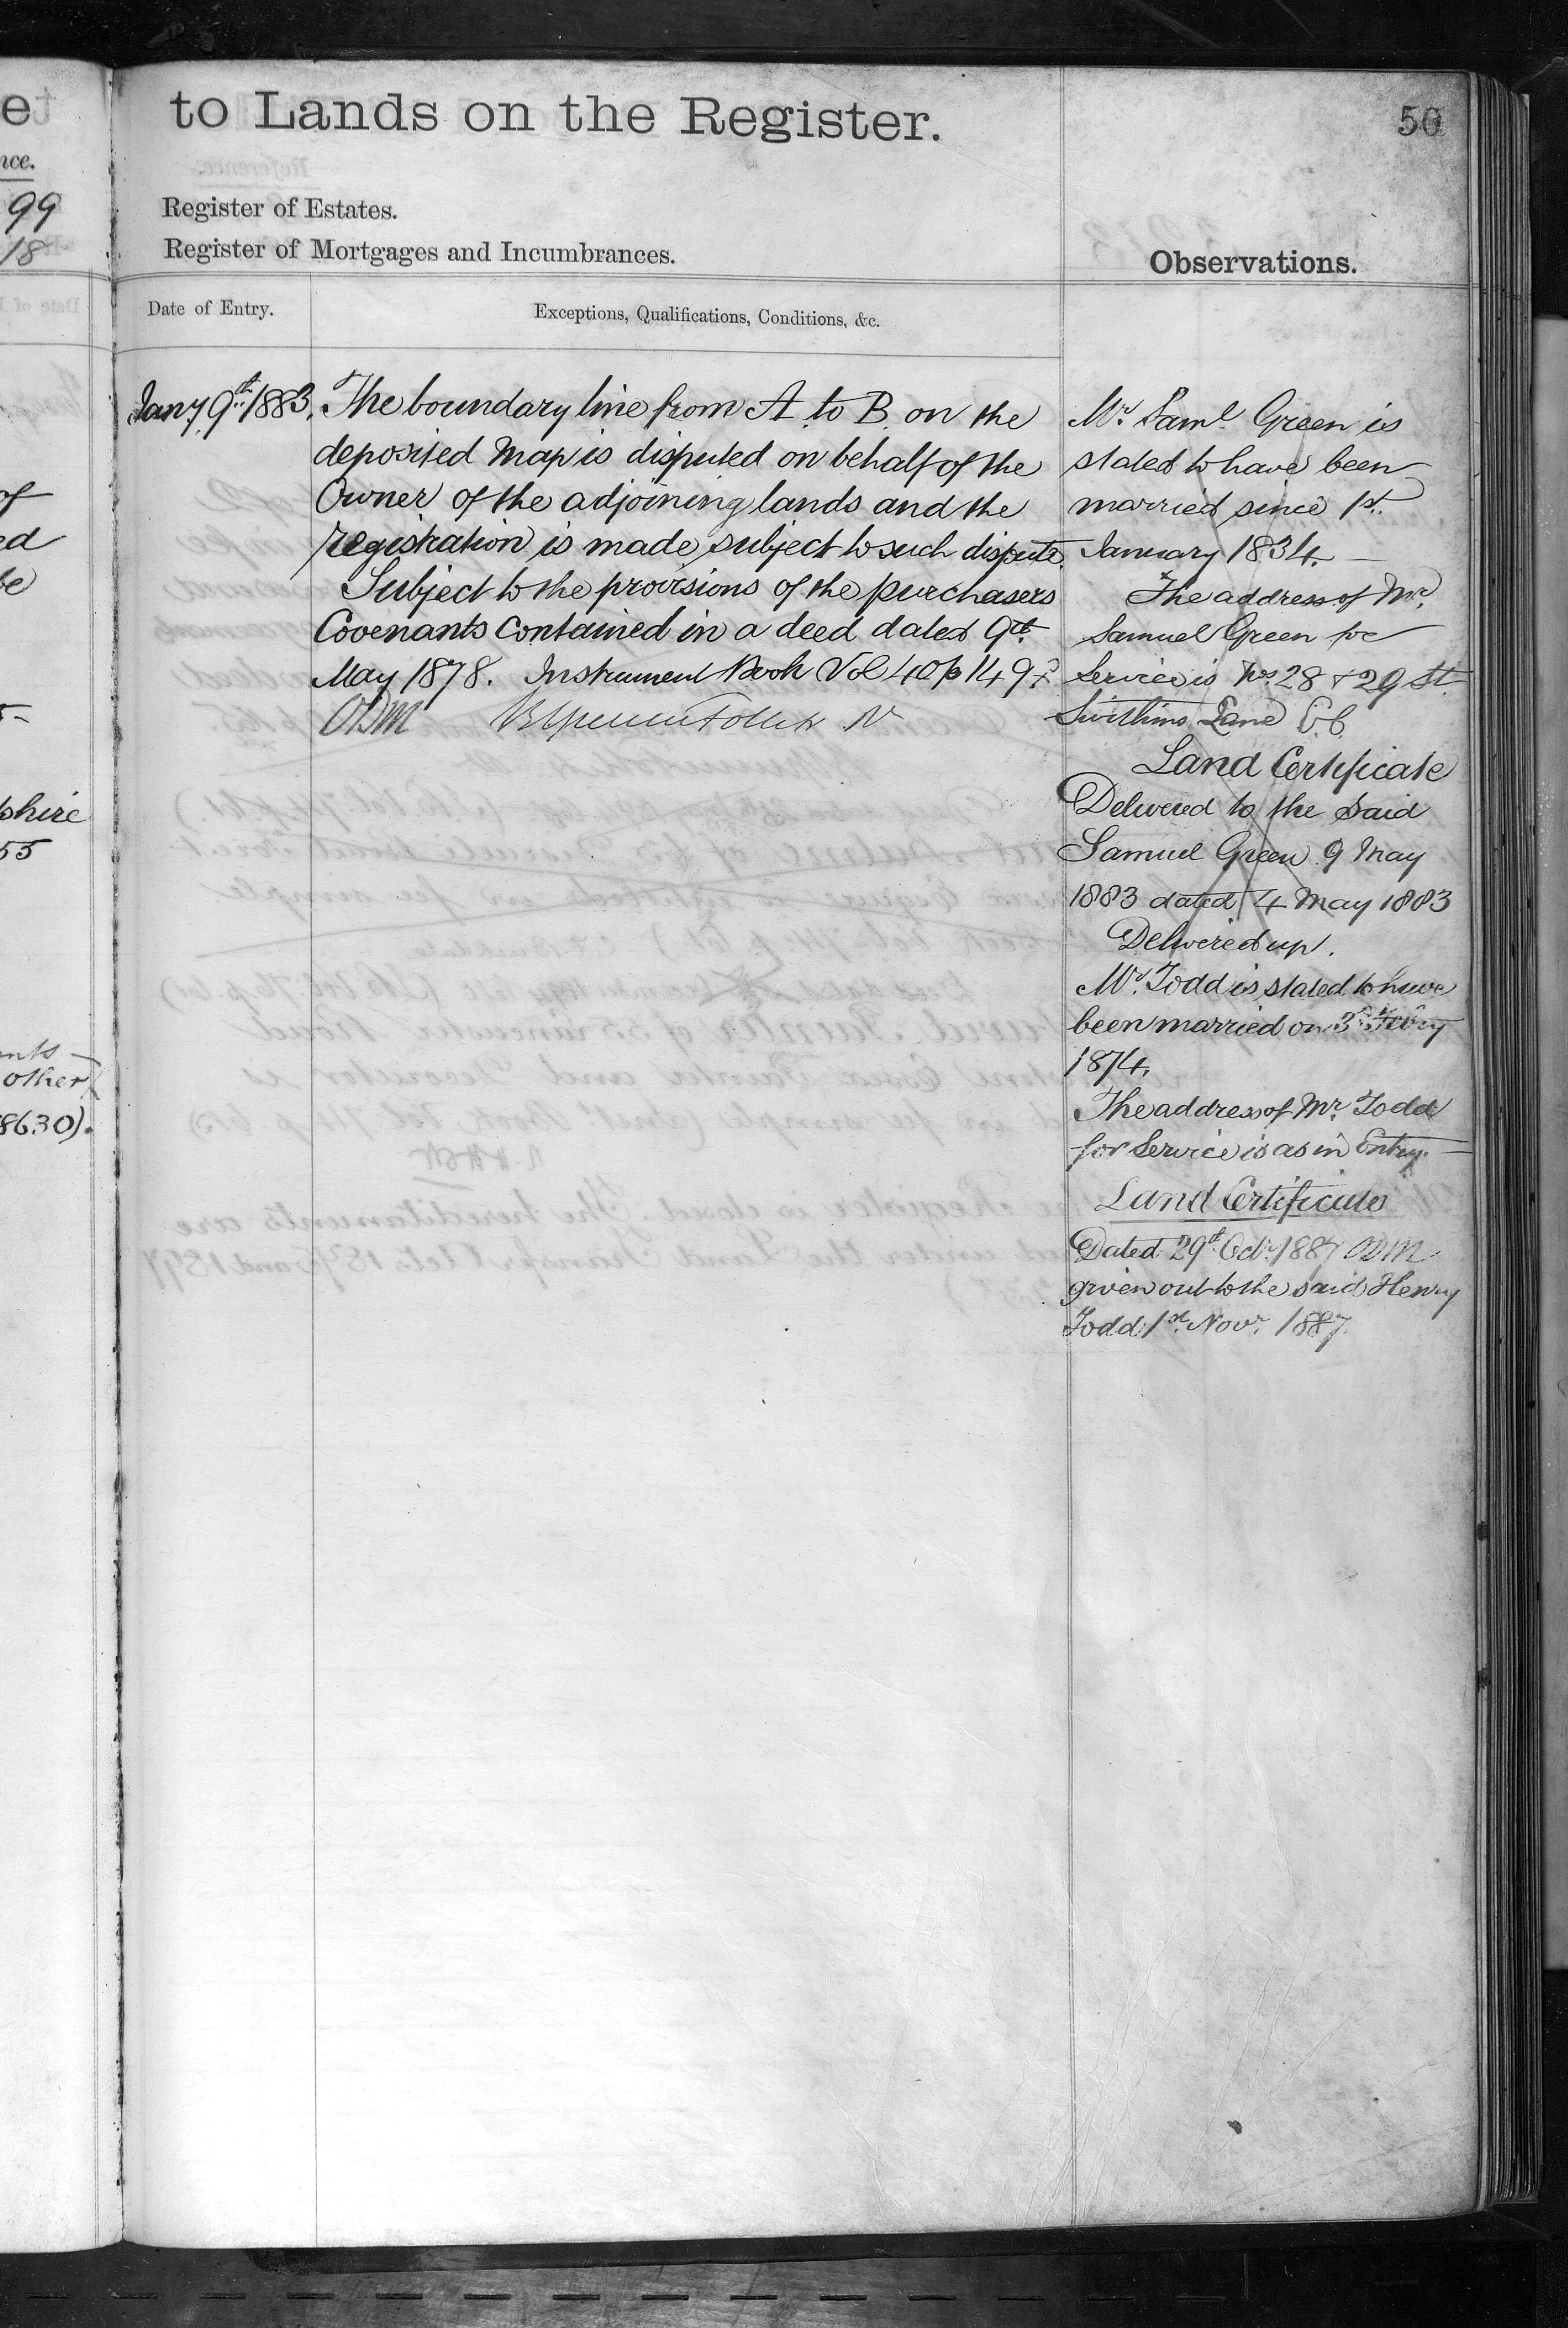 e
nce.
99
18
of
ed
be
5-
shire
55
nts
other
8630).
to Lands on the Register.
50
Register of Estates.
Register of Mortgages and Incumbrances.
Observations.
Date of Entry.
Exceptions, Qualifications, Conditions, &c.
Jany. 9th 1883.
The boundary line from A to B on the
deposited Map is disputed on behalf of the
Owner of the adjoining lands and the
registration is made subject to such dispute.
Subject to the provisions of the purchasers
Covenants contained in a deed dated 9th
May 1878. Instrument Book Vol 40 p 149
ODM
Mr. Saml. Green is
stated to have been
married since 1st.
January 1834.
The address of Mr.
Samuel Green for
Service is Nos. 28 & 29 St
Swithins Lane E.C.
Land Certificate
Delivered to the said
Samuel Green 9 May
1883 dated 4 May 1883
Delivered up.
Mr. Todd is stated to have
been married on 3rd Feby
1874.
The address of Mr. Todd
for Service is as in Entry.
Land Certificate
Dated 29th Octr. 1887 ODM
given out to the said Henry
Todd 1st. Novr. 1887.